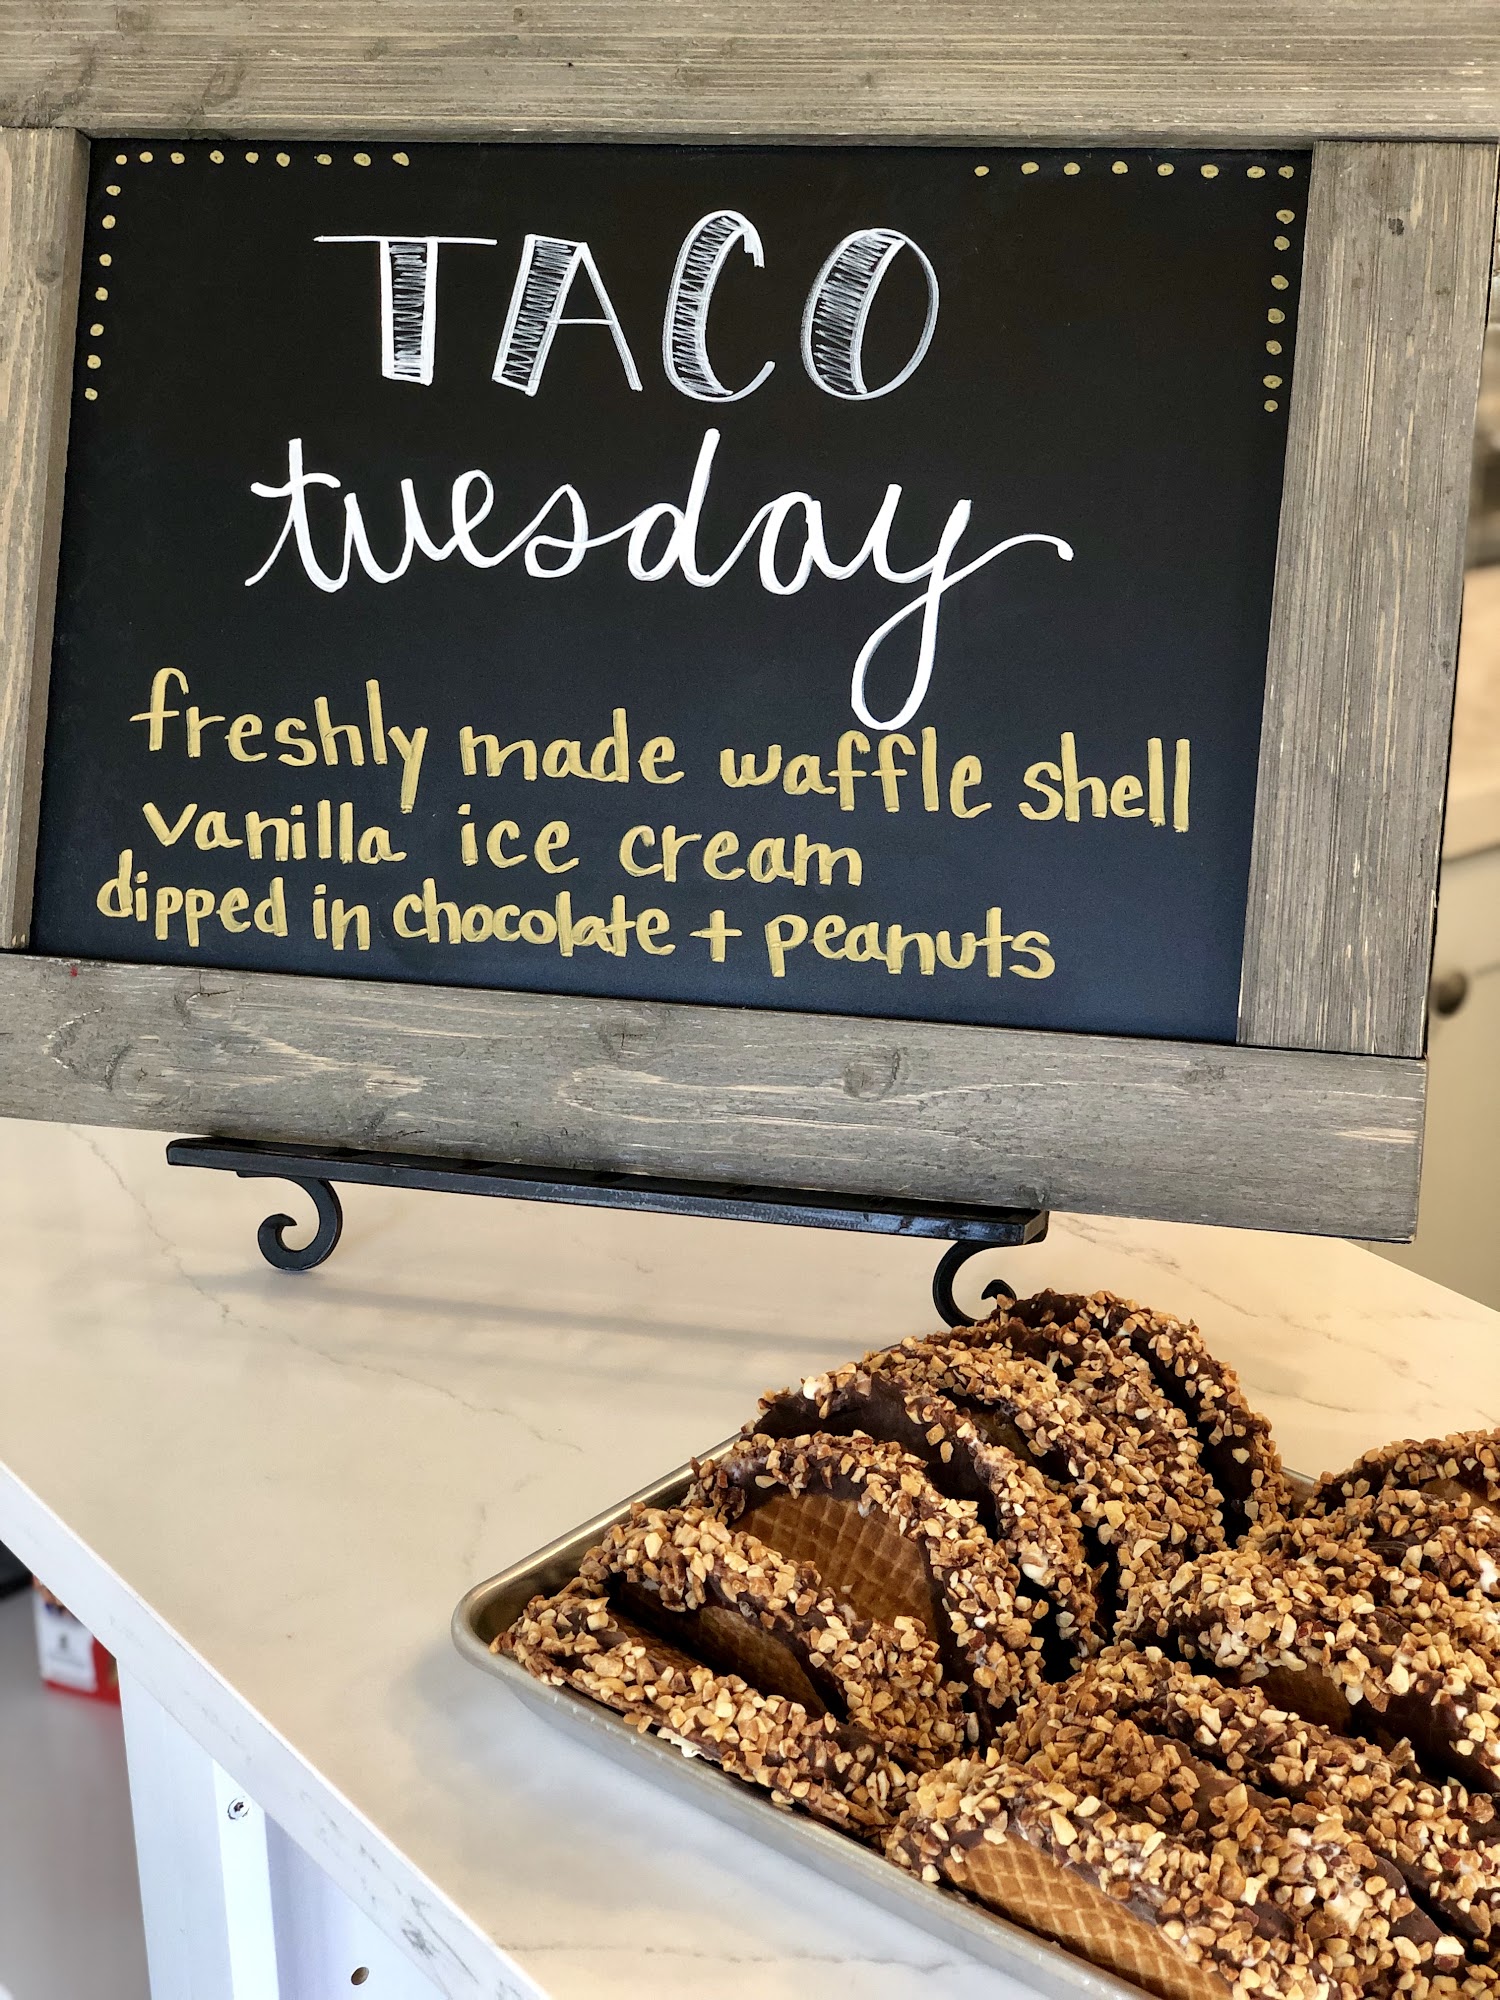 TACO
tuesday
freshly made waffle shell
vanilla ice cream
dipped in chocolate + peanuts